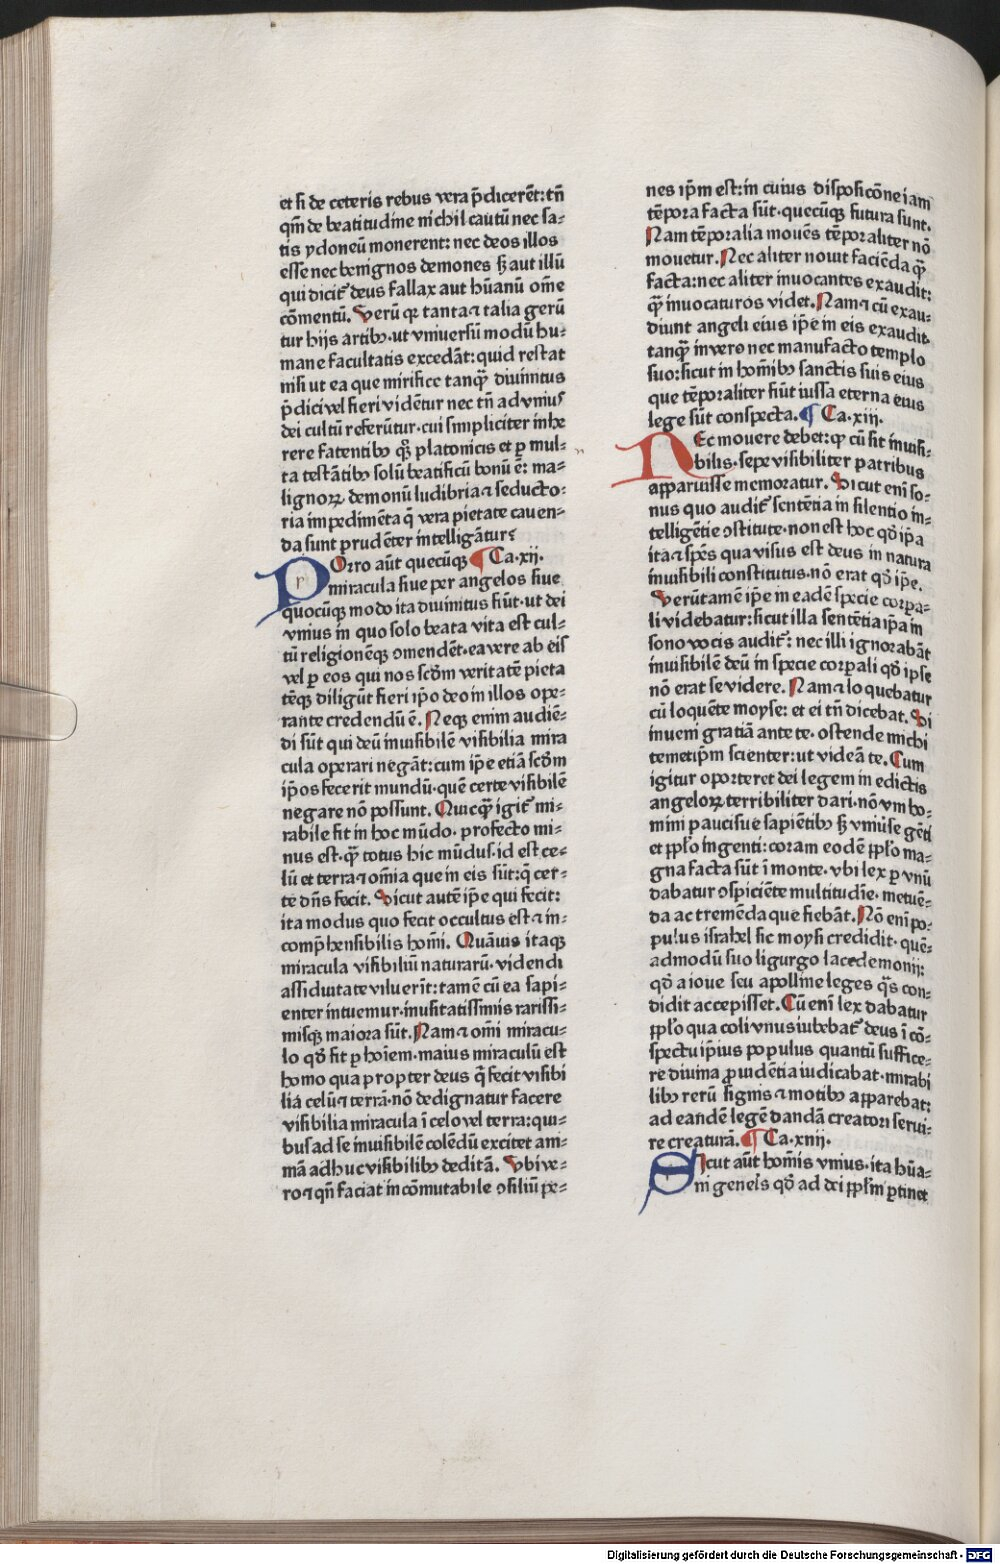 et si de ceteris rebus vera p̄dicerēt: tn̄
qm̄ de beatitudine nichil cautū nec sa⸗
tis ydoneū monerent: nec deos illos
esse nec benignos demones sꝫ aut illū
qui dicit᷑ deus fallax aut hūanū om̄e
cōmentū. Verū qꝛ tanta ⁊ talia gerū
tur hijs artibꝰ· ut vniuersū modū hu⸗
mane facultatis excedāt: quid restat
nisi ut ea que mirifice tanqꝫ̄ diuinitus
p̄dici vel fieri vidētur nec tn̄ ad vniuſ
dei cultū referūtur· cui simpliciter inhe
rere fatentibꝰ qꝫ̄ platonicis et ꝑ mul⸗
ta testātibꝰ solū beatificū bonū ē: ma⸗
lignoꝝ demonū ludibria ⁊ seducto⸗
ria impedimēta q̄ vera pietate cauen⸗
da sunt prudēter intelligātur⸗
POrro aūt quecūqꝫ ¶ Ca·xij.
miracula siue per angelos siue
quocūqꝫ modo ita diuinitus fiūt· ut dei
vnius in quo solo beata vita est cul⸗
tū religionēqꝫ ꝯmendēt· ea vere ab eis
vel ꝑ eos qui nos scd̄m veritatē pieta
tēqꝫ diligūt fieri ip̄o deo in illos ope⸗
rante credendū ē. Neqꝫ enim audiē⸗
di sūt qui deū inuisibilē visibilia mira
cula operari negāt: cum ip̄e etiā scd̄m
ip̄os fecerit mundū· quē certe visibilē
negare nō possunt. Quicqꝫ̄ igit᷑ mi⸗
rabile fit in hoc mūdo· profecto mi⸗
nus est· qꝫ̄ totus hic mūdus· id est ce⸗
lū et terra ⁊ om̄ia que in eis sūt: q̄ cer⸗
te dn̄s fecit. Sicut autē ip̄e qui fecit:
ita modus quo fecit occultus est ⁊ in⸗
comp̄hensibilis hom̄i. Quāuis itaqꝫ
miracula visibiliū naturarū· videndi
assiduitate viluerīt: tamē cū ea sapi⸗
enter intuemur· inusitatissimis rarissi⸗
misqꝫ maiora sūt. Nam ⁊ om̄i miracu⸗
lo qd̄ fit ꝑ hoīem· maius miraculū est
homo qua propter deus q̄ fecit visibi
lia celū ⁊ terrā· nō dedignatur facere
visibilia miracula ī celo vel terra: qui⸗
bus ad se inuisibilē colēdū excitet am⸗
mā adhuc visibilibꝰ deditā. Vbi ve⸗
ro ⁊ qn̄ faciat incōmutabile ꝯsiliū pe⸗
nes ip̄m est: in cuius disposicōne iam
tēpora facta sūt· quecūqꝫ futura sunt.
Nam tēporalia mouēs tēporaliter nō
mouetur. Nec aliter nouit faciēda qꝫ̄
facta: nec aliter inuocantes exaudit:
qꝫ̄ inuocaturos videt. Nam ⁊ cū exau⸗
diunt angeli eius ip̄e in eis exaudit·
tanqꝫ̄ in vero nec manufacto templo
suo: sicut in hom̄ibꝰ sanctis suis eius
que tēporaliter fiūt iussa eterna eius
lege sūt conspecta. ¶ Ca·xiij.
NEc mouere debet: qꝫ cū sit inuisi⸗
bilis· sepe visibiliter patribus
apparuisse memoratur. Sicut enī so⸗
nus quo audit᷑ sentētia in silentio in⸗
telligētie ꝯstitute· non est hoc qd̄ ip̄a
ita ⁊ spēs qua visus est deus in natura
inuisibili constitutus· nō erat qd̄ ip̄e.
Verūtamē ip̄e in eadē specie corpa⸗
li videbatur: sicut illa sentētia ip̄a in
sono vocis audit᷑: nec illi ignorabāt
inuisibilē deū in specie corꝑali qd̄ ipse
nō erat se videre. Nam ⁊ loquebatur
cū loquēte moyse: et ei tn̄ dicebat. Si
inueni gratiā ante te· ostende michi
temetip̄m scienter: ut videā te. Cum
igitur oporteret dei legem in edictis
angeloꝝ terribiliter dari· nō vni ho⸗
mini paucisue sapiētibꝰ sꝫ vniūse gēti
et pp̄lo ingenti: coram eodē pp̄lo ma⸗
gna facta sūt ī monte· vbi lex ꝑ vnū
dabatur ꝯspiciēte multitudīe· metuē⸗
da ac tremēda que fiebāt. Nō enī po⸗
pulus israhel sic moysi credidit· quē⸗
admodū suo ligurgo lacedemonij:
qd̄ a ioue seu apolline leges q̄s con⸗
didit accepisset. Cū enī lex dabatur
pp̄lo qua coli vnus iubebat᷑ deus ī cō⸗
spectu ip̄ius populus quantū suffice⸗
re diuina ꝓuidētia iudicabat· mirabi
libꝰ rerū signis ⁊ motibꝰ apparebat:
ad eandē legē dandā creatori serui⸗
re creaturā. ¶ Ca·xiiij.
SIcut aūt hom̄is vnius· ita hūa⸗
ni gen̄is qd̄ ad dei pp̄lm ꝑtinet
Digitalisierung gefördert durch die Deutsche Forschungsgemeinschaft - DFG